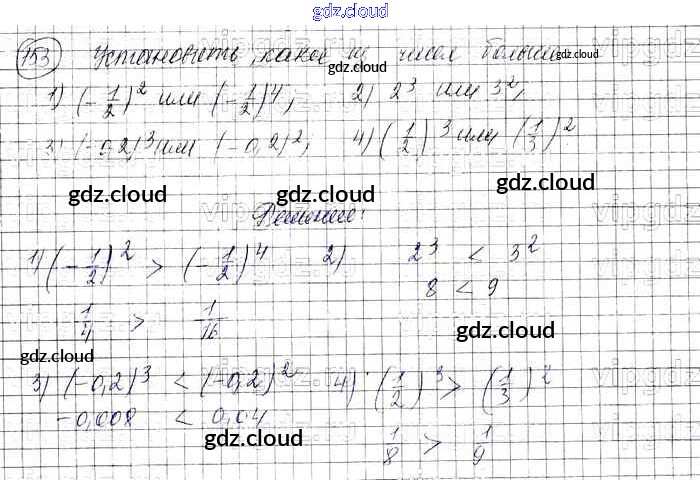 gdz.cloud
153 Установить, какое из чисел больше
gdz.cloud
1) (-1/2)² или (-1/2)⁴; 2) 2³ или 3²;
gdz.cloud
3) (-0,2)³ или (-0,2)²; 4) (1/2)³ или (1/3)²
gdz.cloud gdz.cloud
Решение:
1) (-1/2)² > (-1/2)⁴ 2) 2³ < 3²
8 < 9
1/4 > 1/16
gdz.cloud
gdz.cloud
3) (-0,2)³ < (-0,2)² 4) (1/2)³ > (1/3)²
-0,008 < 0,04
gdz.cloud
1/8 > 1/9
gdz.cloud